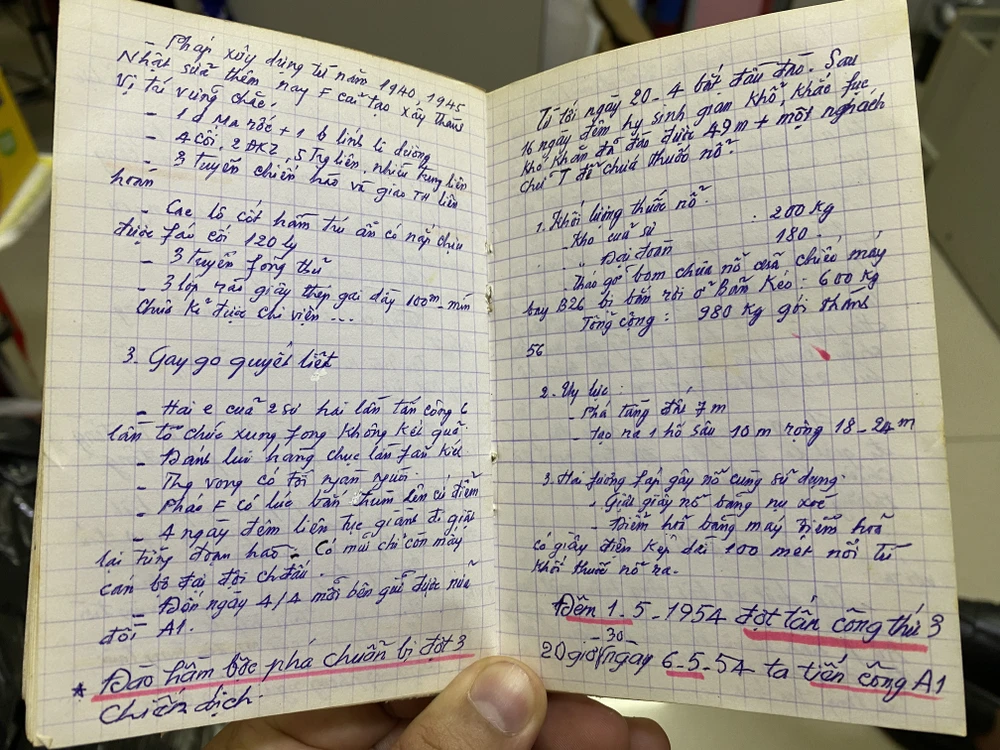 Pháp xây dựng từ năm 1940, 1945
Nhật sửa thêm nay F cải tạo xây thêm
Vị trí vững chắc.
- 1 d Ma rốc + 1 b lính lê dương
- 4 cối, 2 ĐKZ, 5 trg liên, nhiều trung liên
- 3 tuyến chiến hào và giao TH liên
hoàn
- Các lô cốt hầm trú ẩn có nắp chịu
được fáo cối 120 ly
- 3 tuyến fòng thủ
- 3 lớp rào giây thép gai dầy 100m - mìn
Chưa kể được chi viện ...
3. Gay go quyết liệt
- Hai e của 2 sư hai lần tấn công 6
lần tổ chức xung fong không kết quả
- Đánh lui hàng chục lần fản kích
- Thg vong có tới ngàn người
- Pháo F có lúc bắn trùm lên cứ điểm
- 4 ngày đêm liên tục giành đi giật
lại từng đoạn hào. Có mũi chỉ còn mấy
cán bộ đại đội ch đấu.
- Đến ngày 4/4 mỗi bên giữ được nửa
đồi A1.
* Đào hầm bộc phá chuẩn bị đợt 3
chiến dịch.
Từ tối ngày 20 - 4 bắt đầu đào. Sau
16 ngày đêm hy sinh gian khổ, khắc fục
khó khăn đã đào được 49 m + một nghách
chữ T để chứa thuốc nổ.
1. Khối lượng thuốc nổ.
- Kho của sư : 200 Kg
- " Đại đoàn 180
- Tháo gỡ bom chưa nổ của chiếc máy
bay B26 bị bắn rơi ở Bản Kéo : 600 Kg
Tổng cộng : 980 Kg gói thành
56
2. Uy lực :
- Phá tầng đất 7 m
- tạo ra 1 hố sâu 10 m rộng 18 - 24 m
3. Hai fương fáp gây nổ cùng sử dụng.
- Giật giây nổ bằng nụ xoè
- Điểm hoả bằng máy điểm hoả
có giây điện kép dài 100 mét nối từ
khối thuốc nổ ra.
Đêm 1 - 5 - 1954 đợt tấn công thứ 3
20 giờ 30 ngày 6-5-54 ta tiến công A1